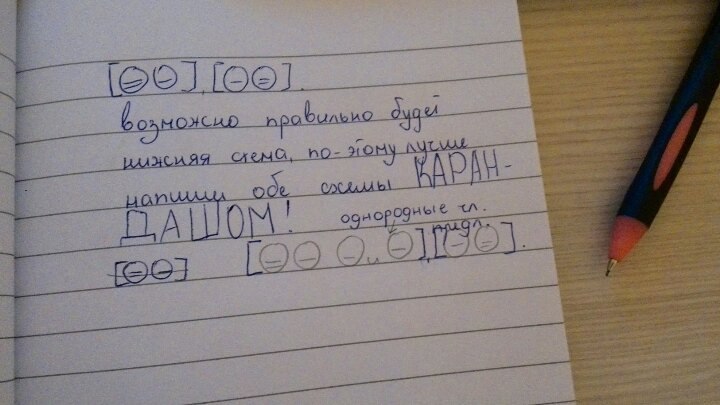 [(=) (–)], [(–) (=)].
возможно правильно будет
нижняя схема, по-этому лучше
напиши обе схемы КАРАН-
ДАШОМ!
однородные чл.
[(–) (–)]
[(–) (–) (–) и (–)], [(–) (=)].